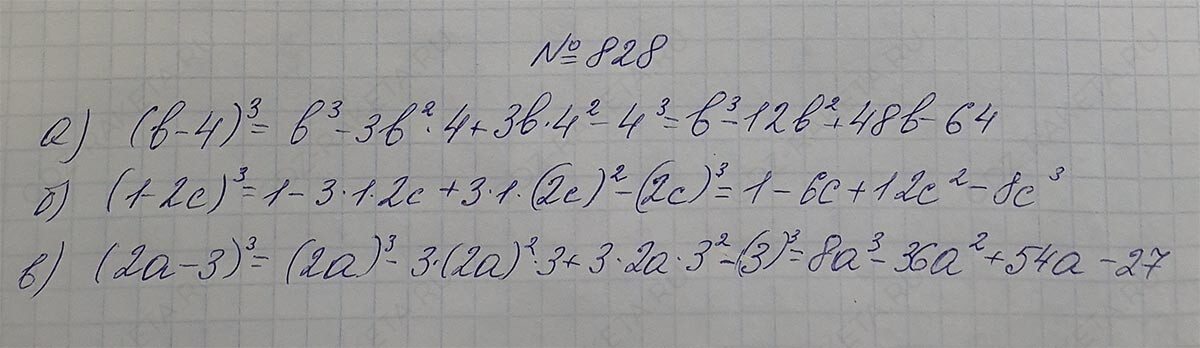 № 828
а) (b-4)³ = b³ - 3b²·4 + 3b·4² - 4³ = b³ - 12b² + 48b - 64
б) (1-2c)³ = 1 - 3·1·2c + 3·1·(2c)² - (2c)³ = 1 - 6c + 12c² - 8c³
в) (2a-3)³ = (2a)³ - 3·(2a)²·3 + 3·2a·3² - (3)³ = 8a³ - 36a² + 54a - 27